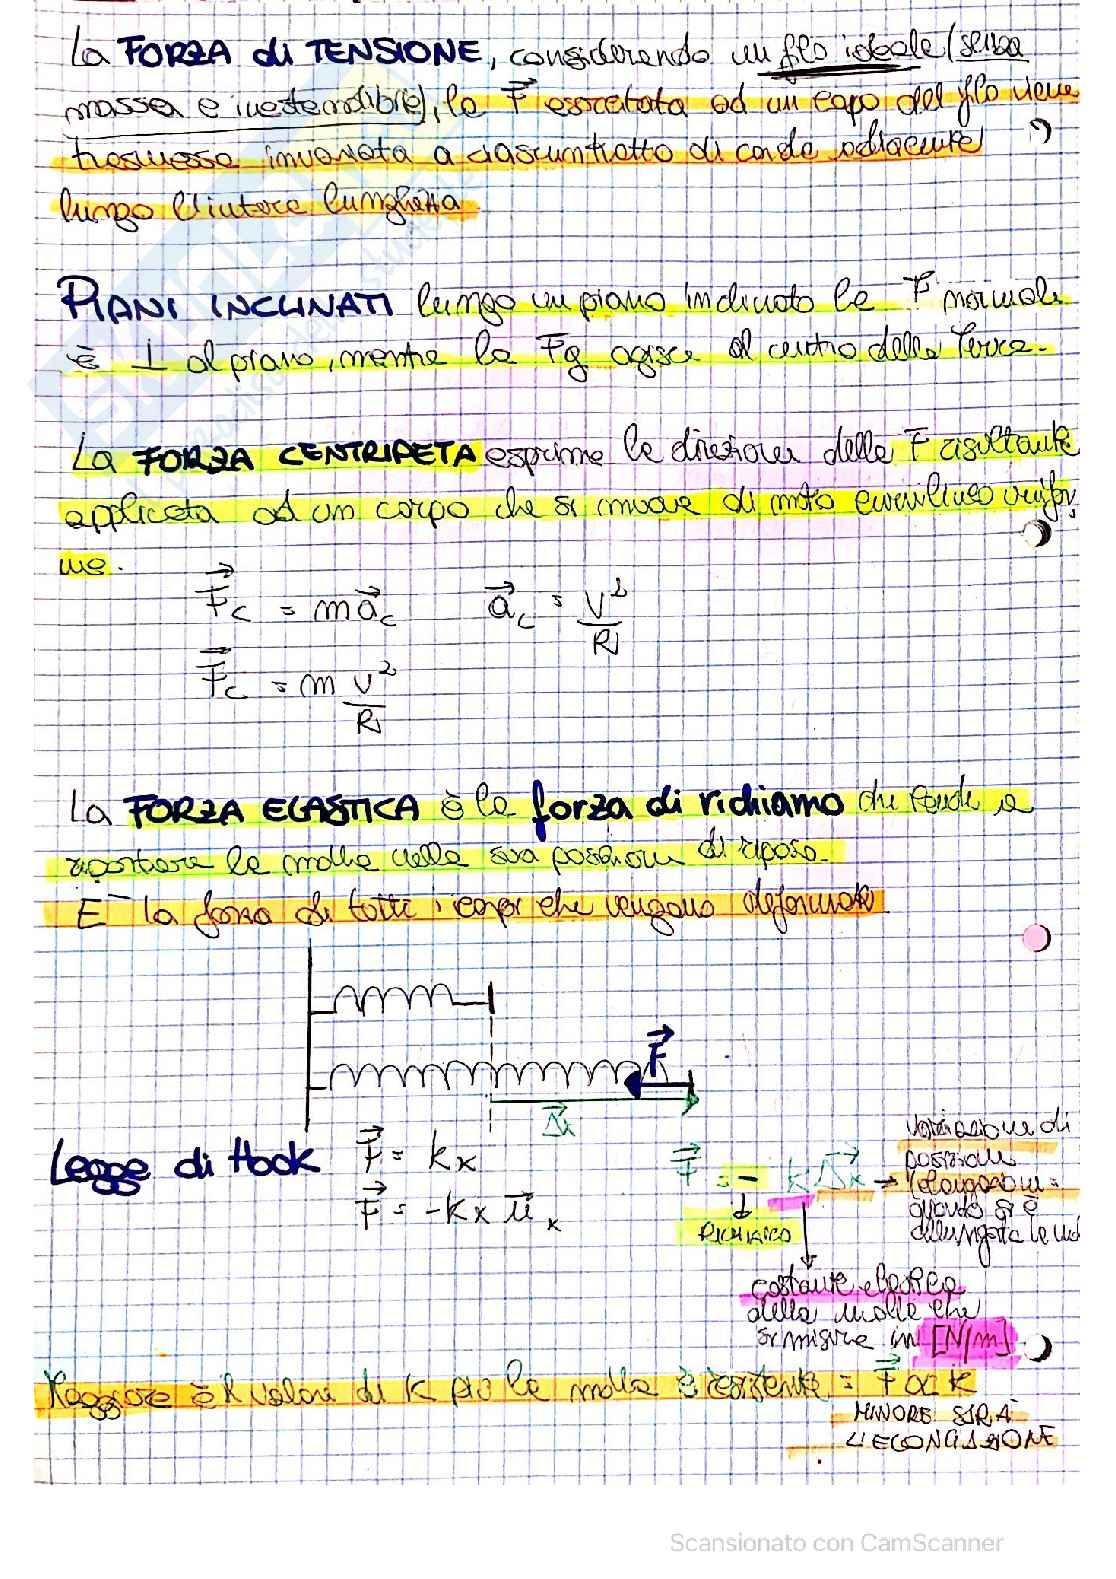 La FORZA di TENSIONE, considerando un filo ideale (senza
massa e inestendibile), la F esercitata ad un capo del filo viene
trasmessa invariata a ciascun tratto di corda adiacente
lungo l'intera lunghezza
PIANI INCLINATI lungo un piano inclinato la F normale
è ⊥ al piano, mentre la Fg agisce al centro della Terra.
La FORZA CENTRIPETA esprime la direzione della F risultante
applicata ad un corpo che si muove di moto curvilineo unifor
me.
F⃗c = m a⃗c a⃗c = v²/R
F⃗c = m v²/R
La FORZA ELASTICA è la forza di richiamo che tende a
riportare la molla nella sua posizione di riposo.
E' la forza di tutti i corpi che vengono deformati
F⃗
Δ⃗x
Legge di Hook F⃗ = kx
F⃗ = -kx u⃗x
F⃗ = - k Δ⃗x → variazione di
posizione
quando si è
allungata la
RICHIAMO
costante elastica
della molla che
si misura in [N/m]
Maggiore è il valore di K più la molla è resistente = F⃗ α K
MINORE SARÀ
Scansionato con CamScanner